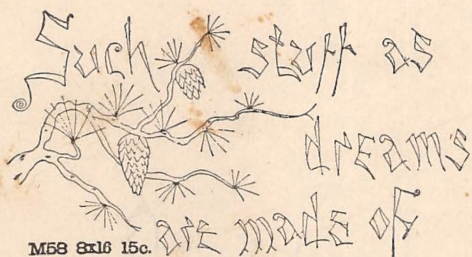 Such stuff as
dreams
are made of
M58 8x16 15c.